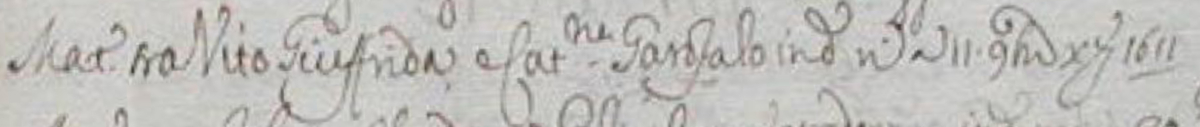 Mat.º tra Vito Giuffrida e Cat.na Garofalo ind n.º a 11. 9bre xv 1611